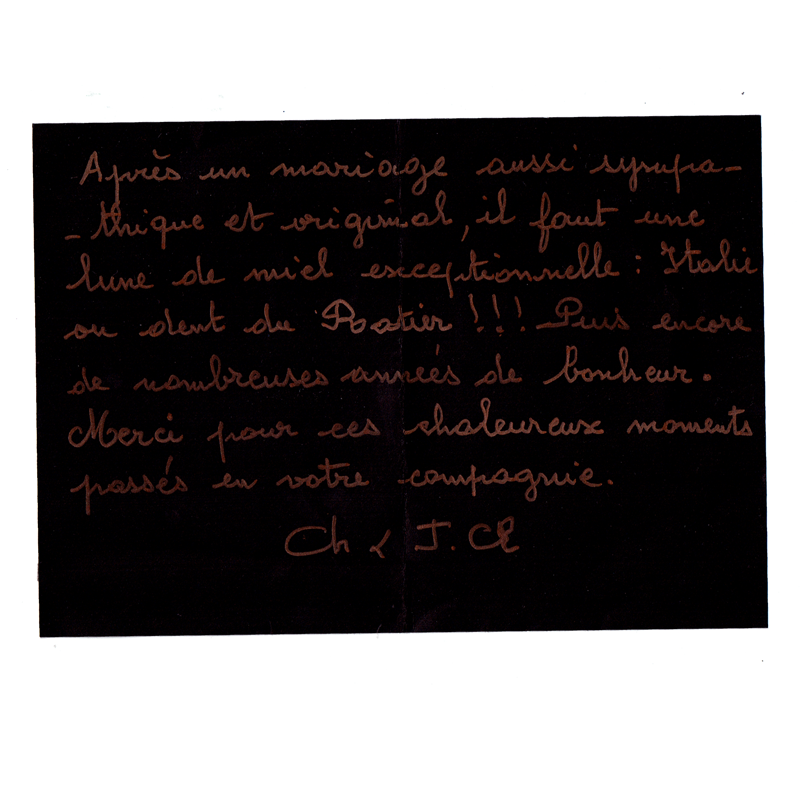 Après un mariage aussi sympa-
-thique et original, il faut une
lune de miel exceptionnelle : Italie
ou dent du !!! Puis encore
de nombreuses années de bonheur.
Merci pour ces chaleureux moments
passés en votre compagnie.
Ch & J. Cl